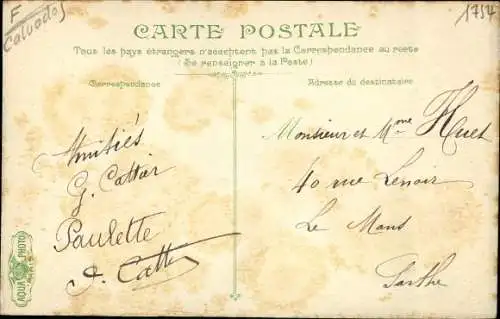 F
Calvados
1754
CARTE POSTALE
Tous les pays étrangers n'acceptent pas la Correspondance au recto
(Se renseigner à la Poste)
Correspondance
Adresse du destinataire
Amitiés
G. Cattier
Paulette
Monsieur et Mme Huet
40 rue Lenoir
Le Mans
Sarthe
AQUA PHOTO
PARIS